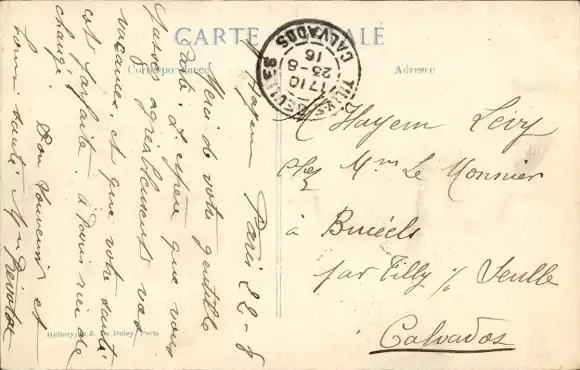 CARTE POSTALE
Correspondance
Adresse
TILLY-S-SEULLES
17 10
23-8
16
CALVADOS
M Hayem Levy
chez Mme Le Monnier
à Bucéels
par Tilly s/ Seulle
Calvados
Paris 22-8
Merci de votre gentille
carte. J'espère que vous
passez agréablement vos
vacances, et que votre santé
est parfaite. A Paris rien de
changé. Bon souvenir et
bonne santé
Héliotypie E. Le Deley, Paris